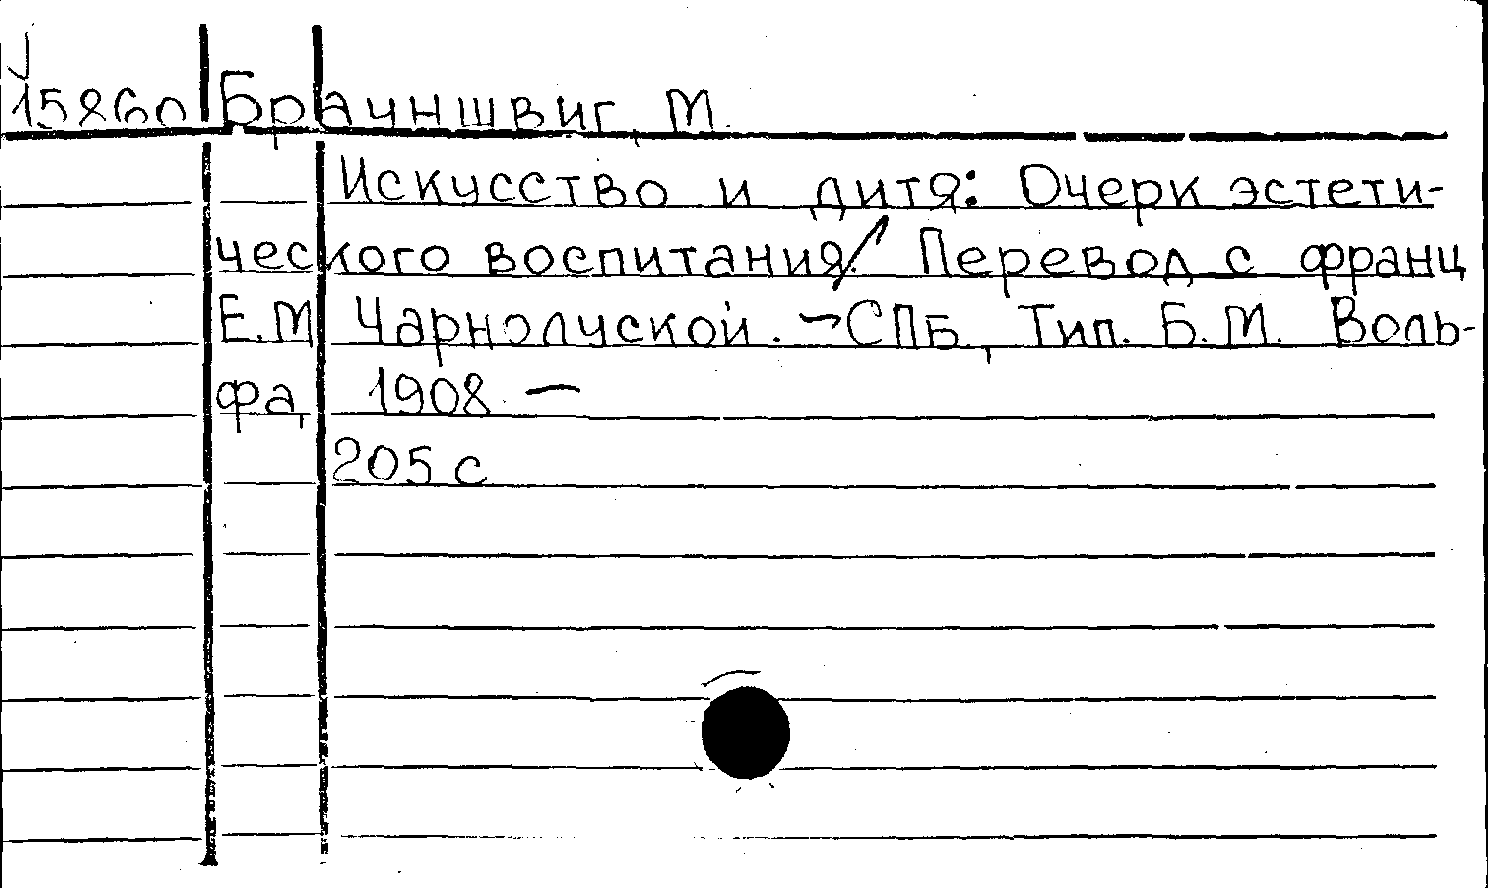 15860 Брауншвиг, М.
Искусство и дитя: Очерк эстети-
ческого воспитания / Перевод с франц
Е.М Чарнолуской. - СПБ, Тип. Б.М. Воль-
фа, 1908 -
205 с